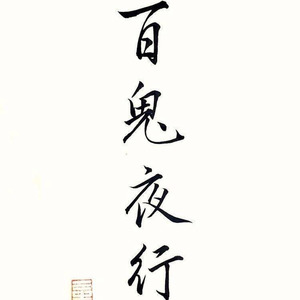 百鬼夜行